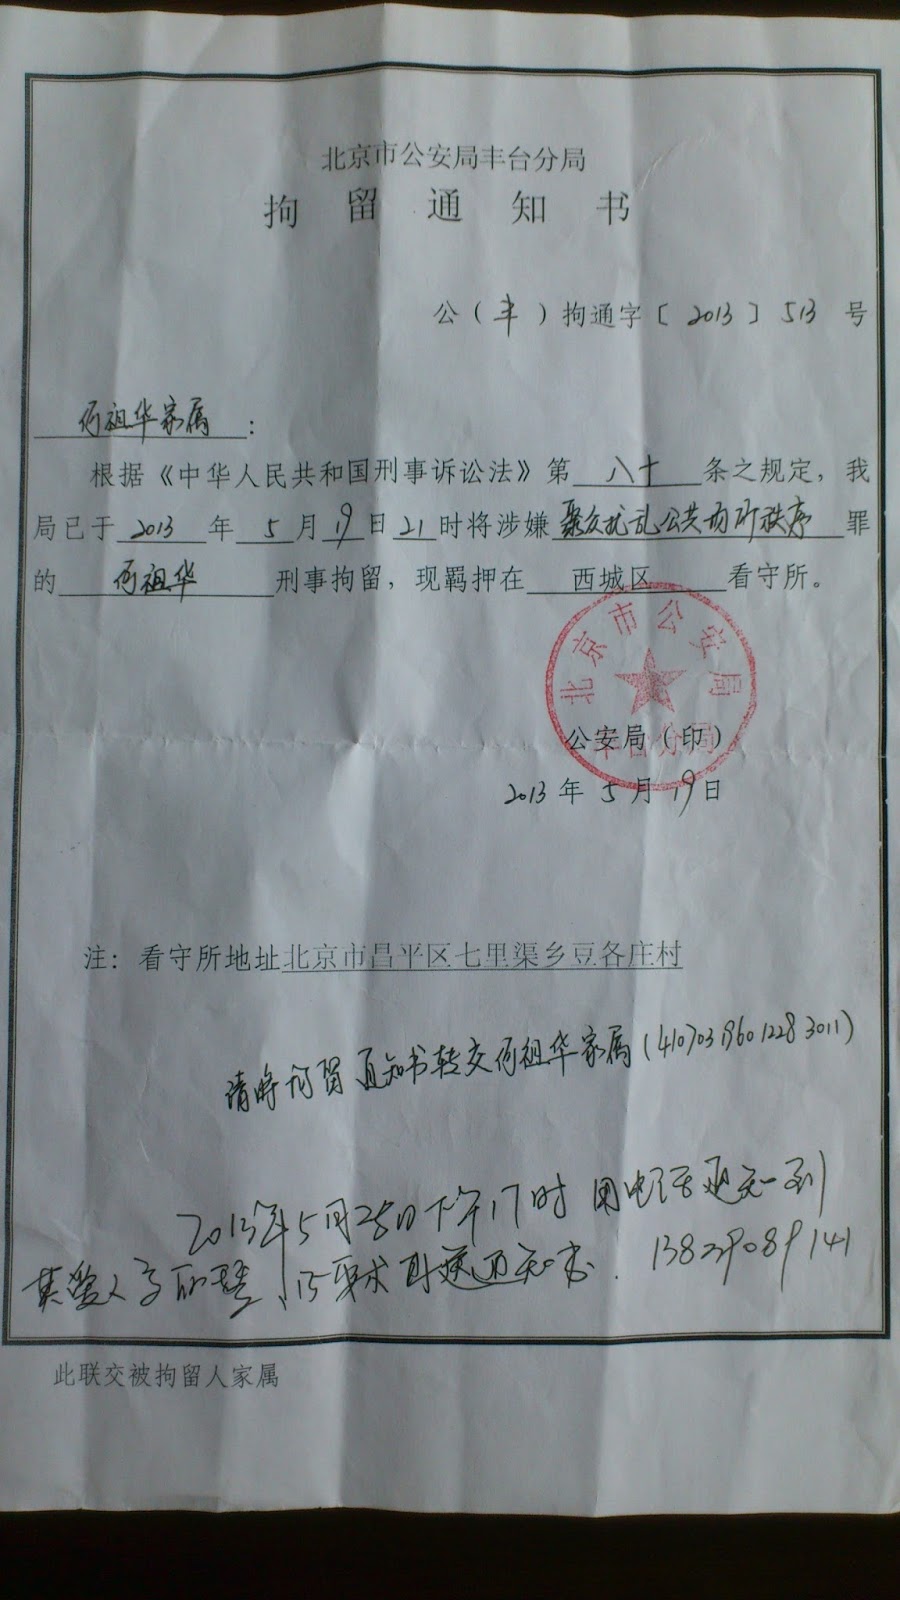 北京市公安局丰台分局
拘留通知书
公（丰）拘通字〔2013〕513号
何祖华家属：
根据《中华人民共和国刑事诉讼法》第八十条之规定，我
局已于2013年5月19日21时将涉嫌聚众扰乱公共场所秩序罪
的何祖华刑事拘留，现羁押在西城区看守所。
北京市公安局
丰台分局
公安局（印）
2013年5月19日
注：看守所地址北京市昌平区七里渠乡豆各庄村
请将拘留通知书转交何祖华家属(410703196012283011)
2013年5月28日下午17时用电话通知到
其爱人，要求再送通知书．13839089141
此联交被拘留人家属